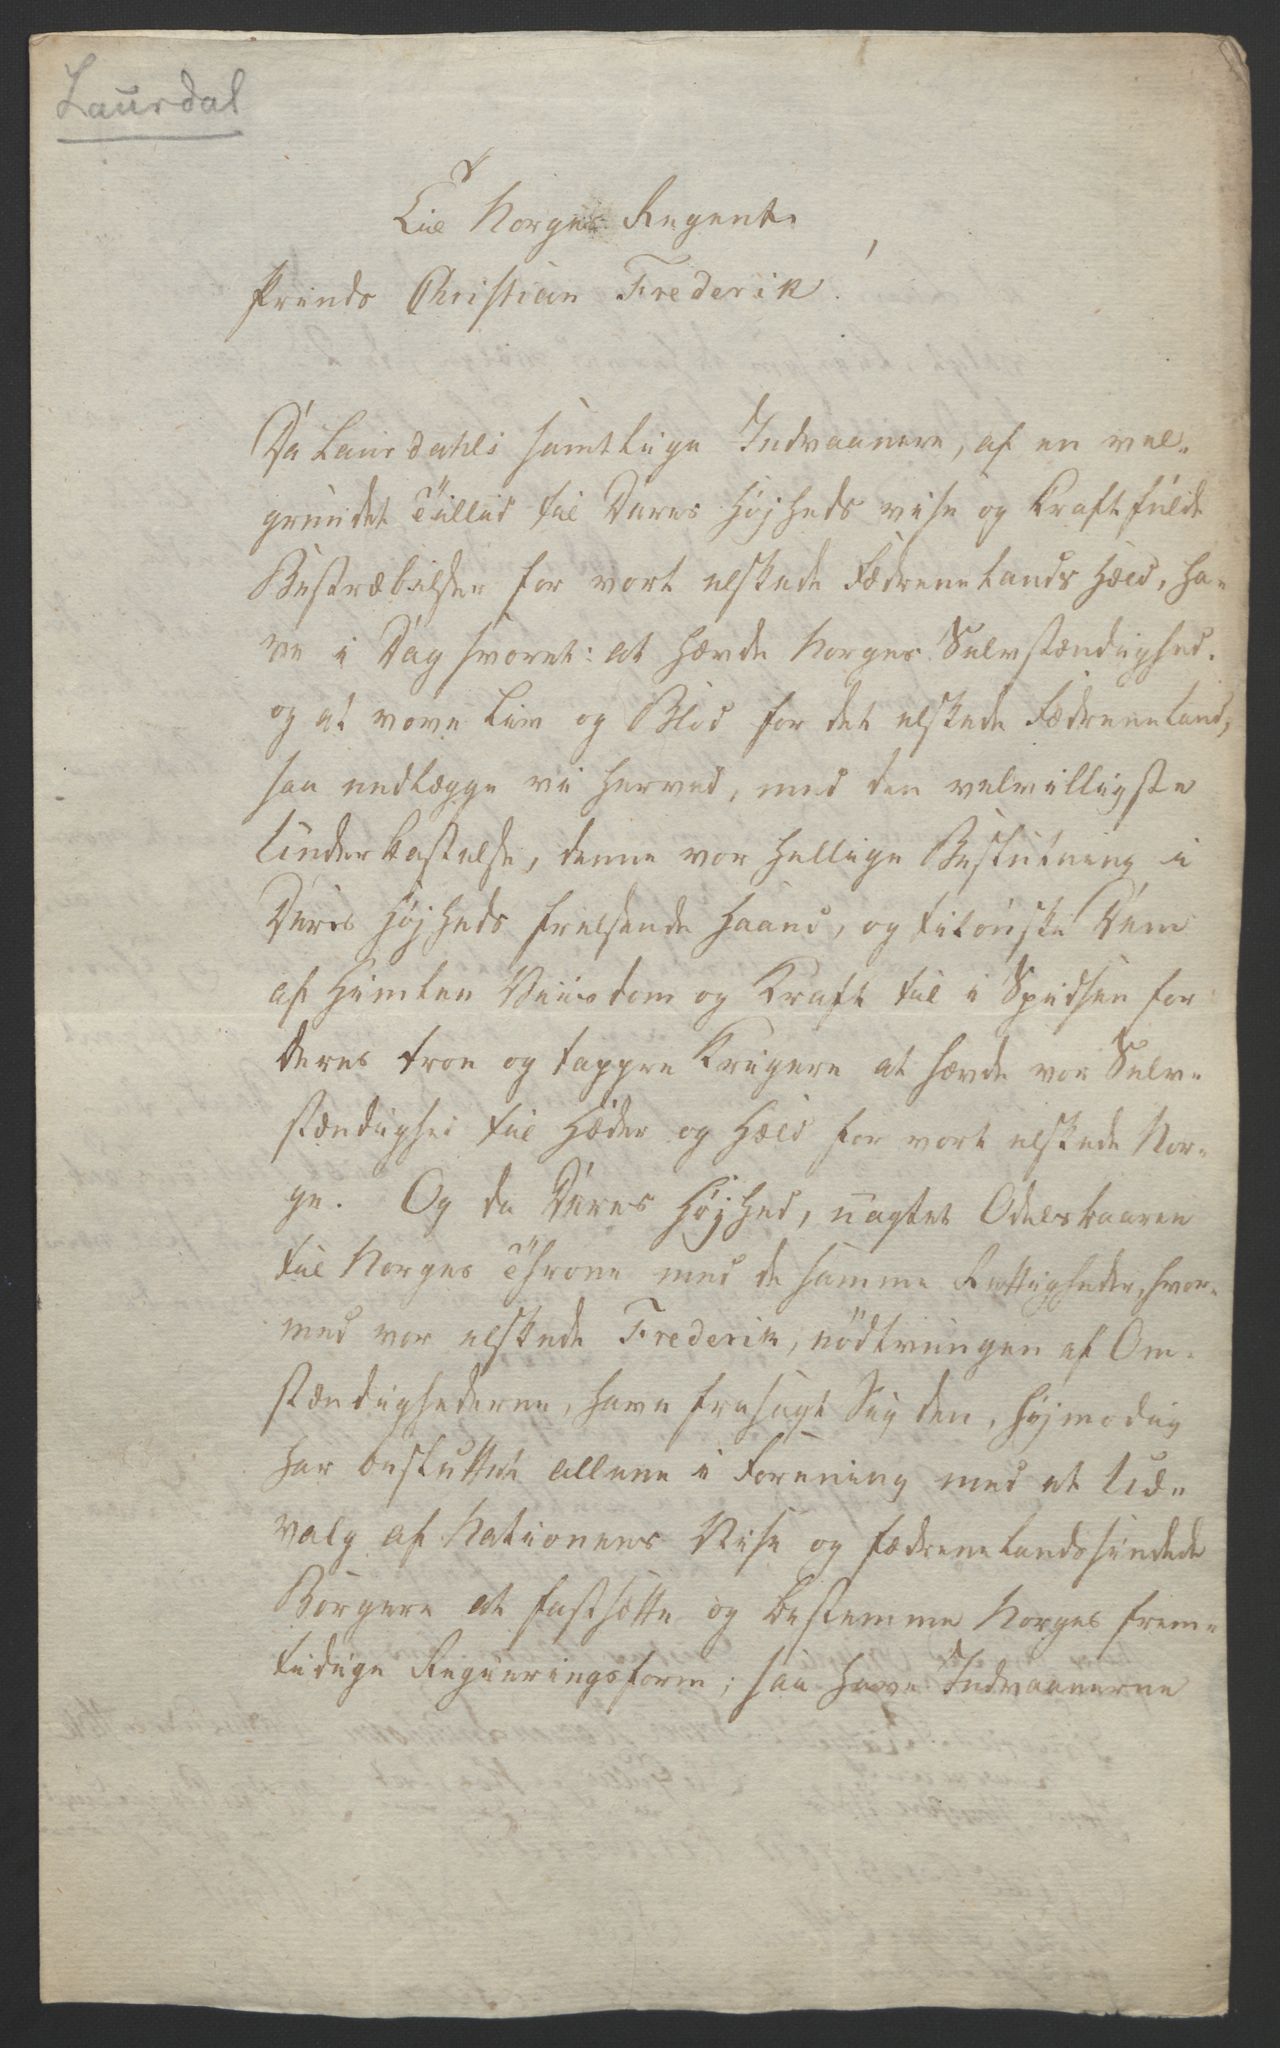 Laurdal
Til Norges Regent
Prinds Christian Frederik!
Da Laurdahls samtlige Indvaanere, af en vel-
grundet Tillid til Deres Højheds vise og Kraftfulde
Bestræbelser for vort elskede Fædrenelands Hæld, ha-
ve i Dag svoret: at hævde Norges Selvstændighed.
og at vove Liv og Blod for det elskede Fædreneland,
saa nedlægge vi herved, med den velvilligste
Underkastelse, denne vor hellige Beslutning i
Deres Højheds frelsende Haand, og tilønske Dem
af Himlen Viisdom og Kraft til i Spidsen for
Deres troe og tappre Krigere at hævde vor Selv-
stændighed til Hæder og Hæld for vort elskede Nor-
ge. Og da Deres Højhed, uagtet Odelsbaaren
til Norges Throne med de samme Rettigheder, hvor-
med vor elskede Frederik, nödtvungen af Om-
stændighederne, have frasagt Sig den, højmodig
har besluttet allene i Forening med et Ud-
valg af Nationens Vise og fædrenelandssindede
Borgere at fastsætte og bestemme Norges frem-
tidige Regieringsform; saa have Indvaanerne